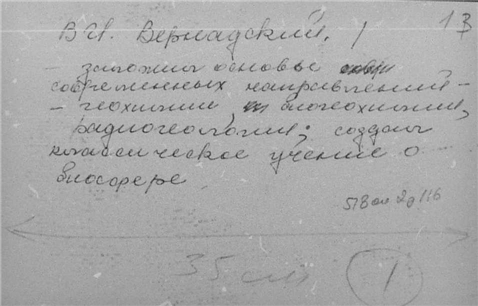 13
В.И. Вернадский, /
- заложил основы
современных направлений -
- геохимии и биогеохимии,
радиогеологии; создал
классическое учение о
биосфере
35 см
1